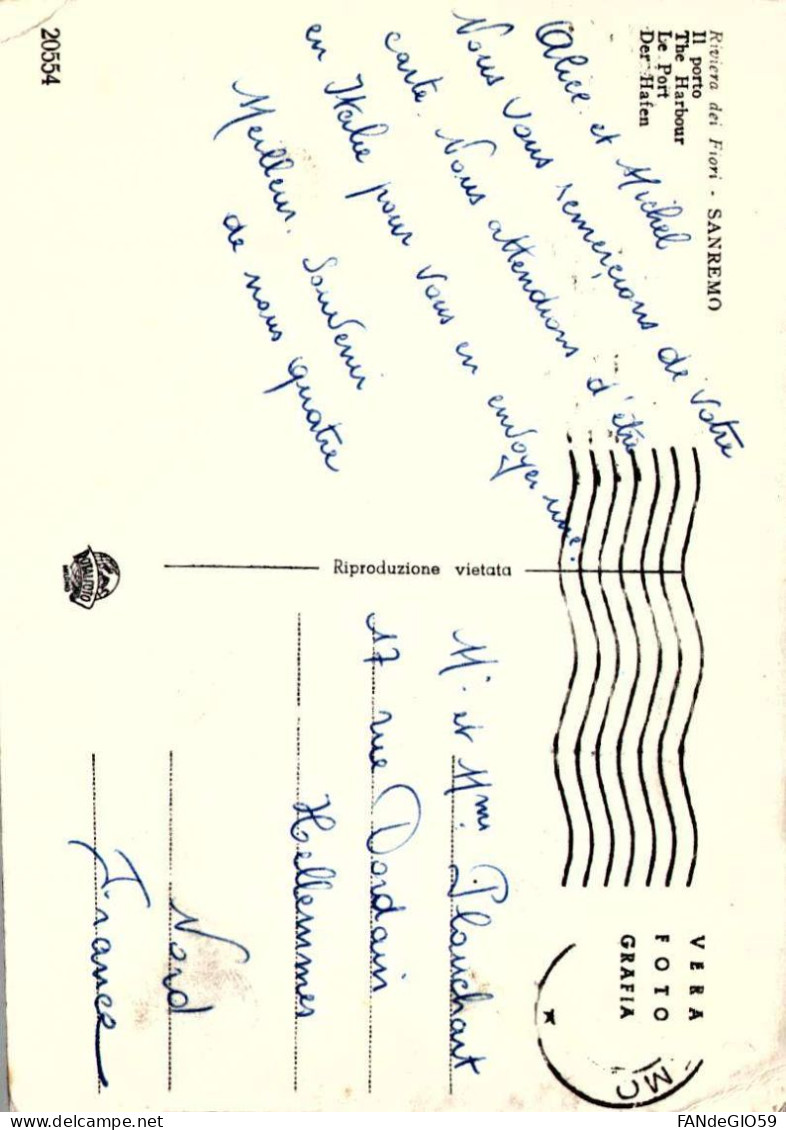 Riviera dei Fiori - SANREMO
Il porto
The Harbour
Le Port
Der Hafen
Alice et Michel
Nous vous remerçions de votre
carte. Nous attendions d'être
en Italie pour vous en envoyer une.
Meilleur Souvenir
de nous quatre
20554
Riproduzione vietata
VERA
FOTO
GRAFIA
Mr et Mme Plauchart
17 rue Dordain
Hellemmes
Nord
France
delcampe.net
FANdeGIO59